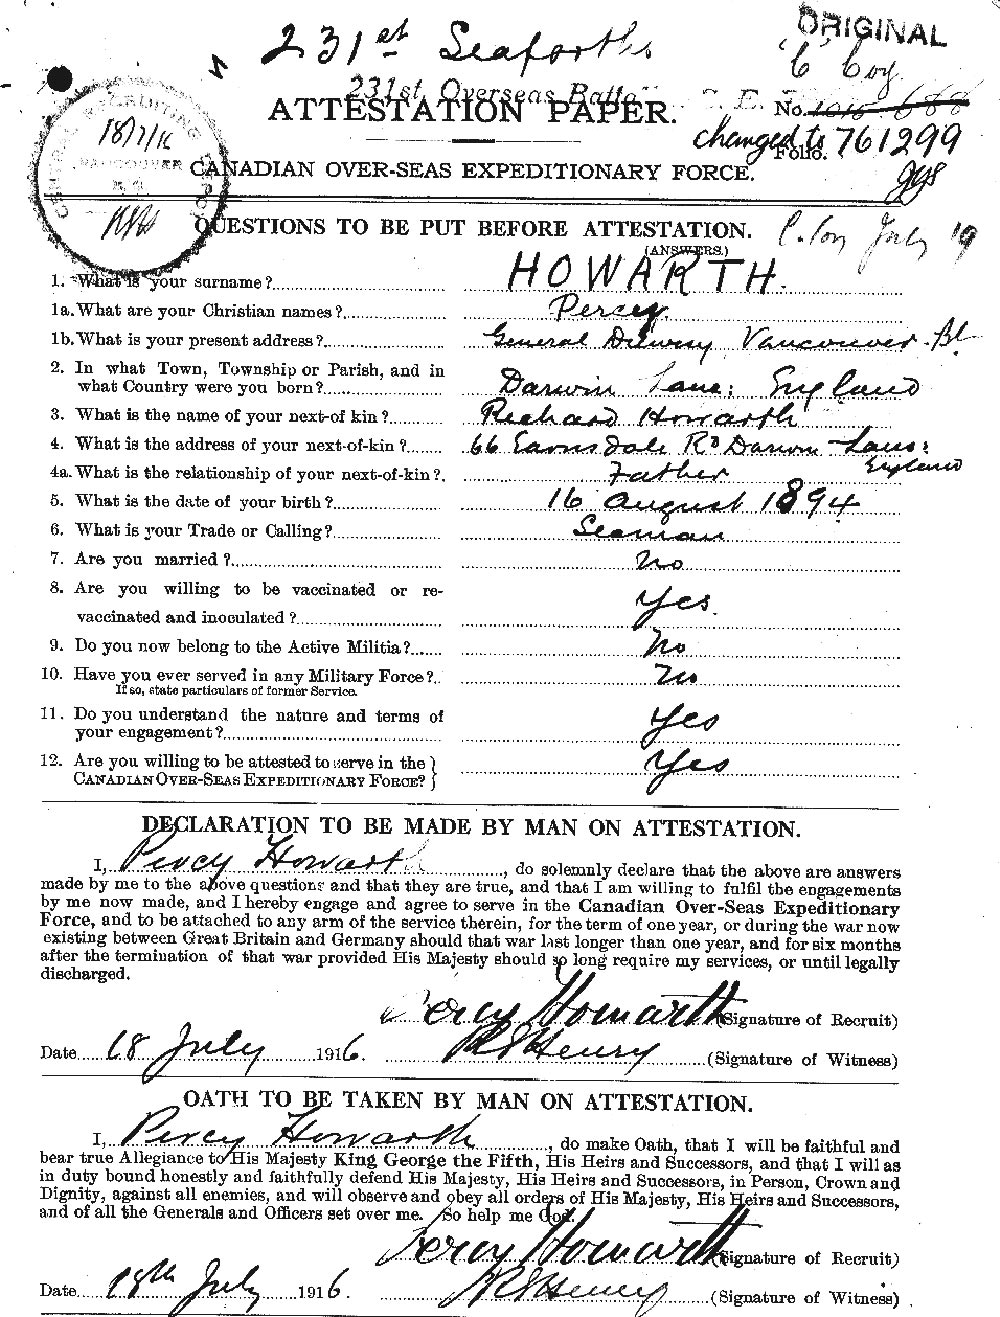 ORIGINAL
231st Seaforths
"C" Coy.
231st. Overseas Batta
C. E.
ATTESTATION PAPER.
No. 1015 688
changed to 761299
Folio.
CENTRAL RECRUITING DEPOT
18/7/16
VANCOUVER
B.C.
CANADIAN OVER-SEAS EXPEDITIONARY FORCE.
QUESTIONS TO BE PUT BEFORE ATTESTATION.
July 19
(ANSWERS.)
1. What is your surname? HOWARTH.
1a. What are your Christian names? Percy.
1b. What is your present address? General Delivery Vancouver. BC
2. In what Town, Township or Parish, and in
what Country were you born? Darwin Lanc: England
3. What is the name of your next-of kin? Richard Howarth
4. What is the address of your next-of-kin? 66 Earnsdale Rd Darwin Lancs:
England
4a. What is the relationship of your next-of-kin? Father
5. What is the date of your birth? 16 august 1894
6. What is your Trade or Calling? Seaman
7. Are you married? No
8. Are you willing to be vaccinated or re-
vaccinated and inoculated? Yes.
9. Do you now belong to the Active Militia? No
10. Have you ever served in any Military Force? No
If so, state particulars of former Service.
11. Do you understand the nature and terms of
your engagement? Yes
12. Are you willing to be attested to serve in the
CANADIAN OVER-SEAS EXPEDITIONARY FORCE? } Yes
DECLARATION TO BE MADE BY MAN ON ATTESTATION.
I, Percy Howarth, do solemnly declare that the above are answers
made by me to the above questions and that they are true, and that I am willing to fulfil the engagements
by me now made, and I hereby engage and agree to serve in the Canadian Over-Seas Expeditionary
Force, and to be attached to any arm of the service therein, for the term of one year, or during the war now
existing between Great Britain and Germany should that war last longer than one year, and for six months
after the termination of that war provided His Majesty should so long require my services, or until legally
discharged.
Percy Howarth (Signature of Recruit)
Date 18 July 1916. R S Henry (Signature of Witness)
OATH TO BE TAKEN BY MAN ON ATTESTATION.
I, Percy Howarth, do make Oath, that I will be faithful and
bear true Allegiance to His Majesty King George the Fifth, His Heirs and Successors, and that I will as
in duty bound honestly and faithfully defend His Majesty, His Heirs and Successors, in Person, Crown and
Dignity, against all enemies, and will observe and obey all orders of His Majesty, His Heirs and Successors,
and of all the Generals and Officers set over me. So help me God.
Percy Howarth (Signature of Recruit)
Date 18th July 1916 R S Henry (Signature of Witness)